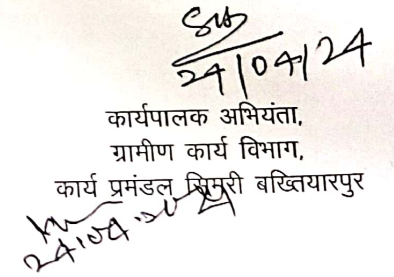 24/04/24
कार्यपालक अभियंता,
ग्रामीण कार्य विभाग,
कार्य प्रमंडल सिमरी बख्तियारपुर
24.04.2024